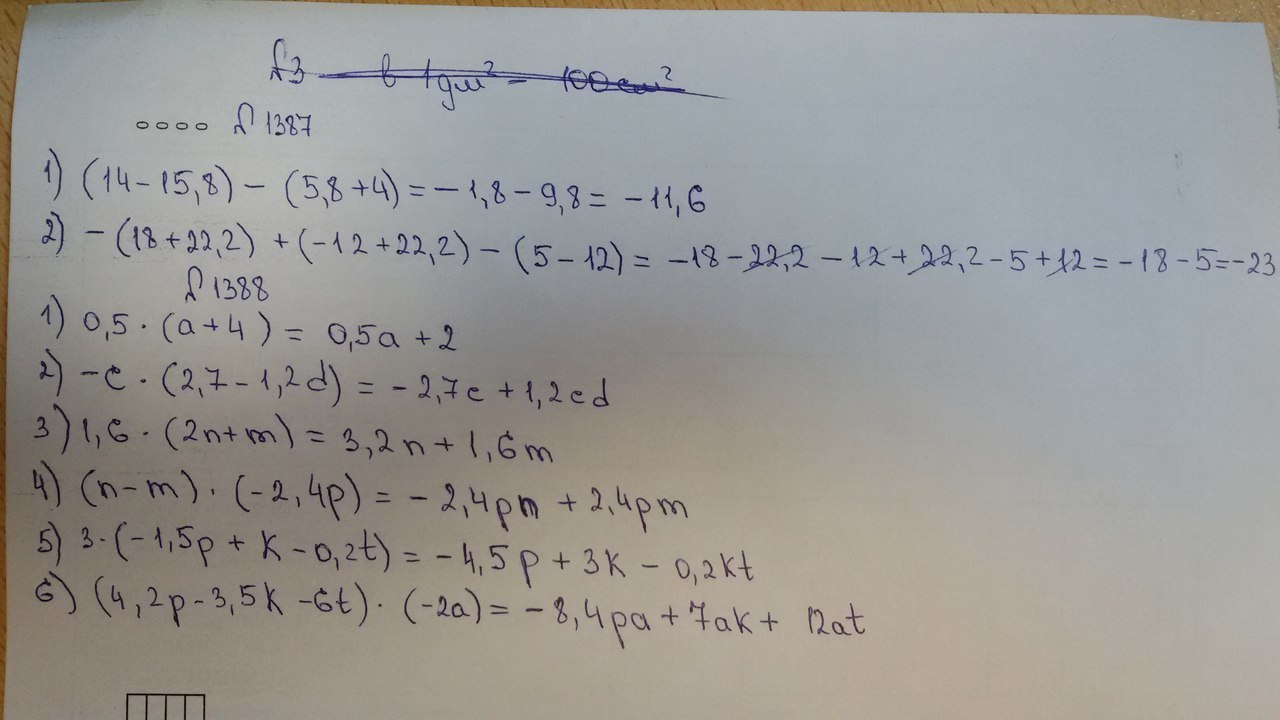 №3 в 1дм² = 100 см²
№1387
1) (14-15,8) - (5,8+4) = -1,8-9,8 = -11,6
2) -(18+22,2) + (-12+22,2) - (5-12) = -18-22,2-12+22,2-5+12 = -18-5=-23
№1388
1) 0,5·(a+4) = 0,5a+2
2) -c·(2,7-1,2d) = -2,7c+1,2cd
3) 1,6·(2n+m) = 3,2n+1,6m
4) (n-m)·(-2,4p) = -2,4pn+2,4pm
5) 3·(-1,5p+k-0,2t) = -4,5p+3k-0,2kt
6) (4,2p-3,5k-6t)·(-2a) = -8,4pa+7ak+12at